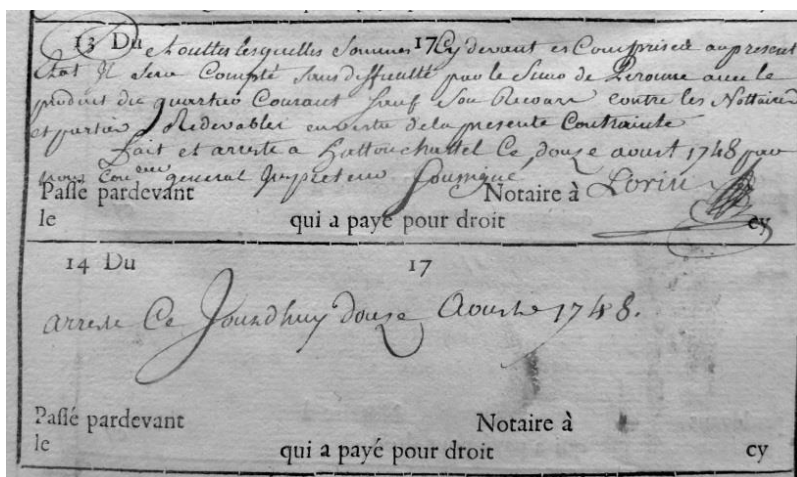 13 Du & touttes lesquelles sommes 17 Cy devant et Comprises au present
Etat Il sera Compté sans difficulté par le Sieur de Peronne avec le
produit du quartier Courant sauf son Recours contre les Nottaires
et parties Redevables en vertu de la presente Contrainte
Fait et arresté a hattonchastel Ce douze aoust 1748 par
nous general soussigné Lorin
Passé pardevant Notaire à
le qui a payé pour droit cy
14 Du 17
arresté Ce Jourdhuy douze Aoust 1748.
Passé pardevant Notaire à
le qui a payé pour droit cy